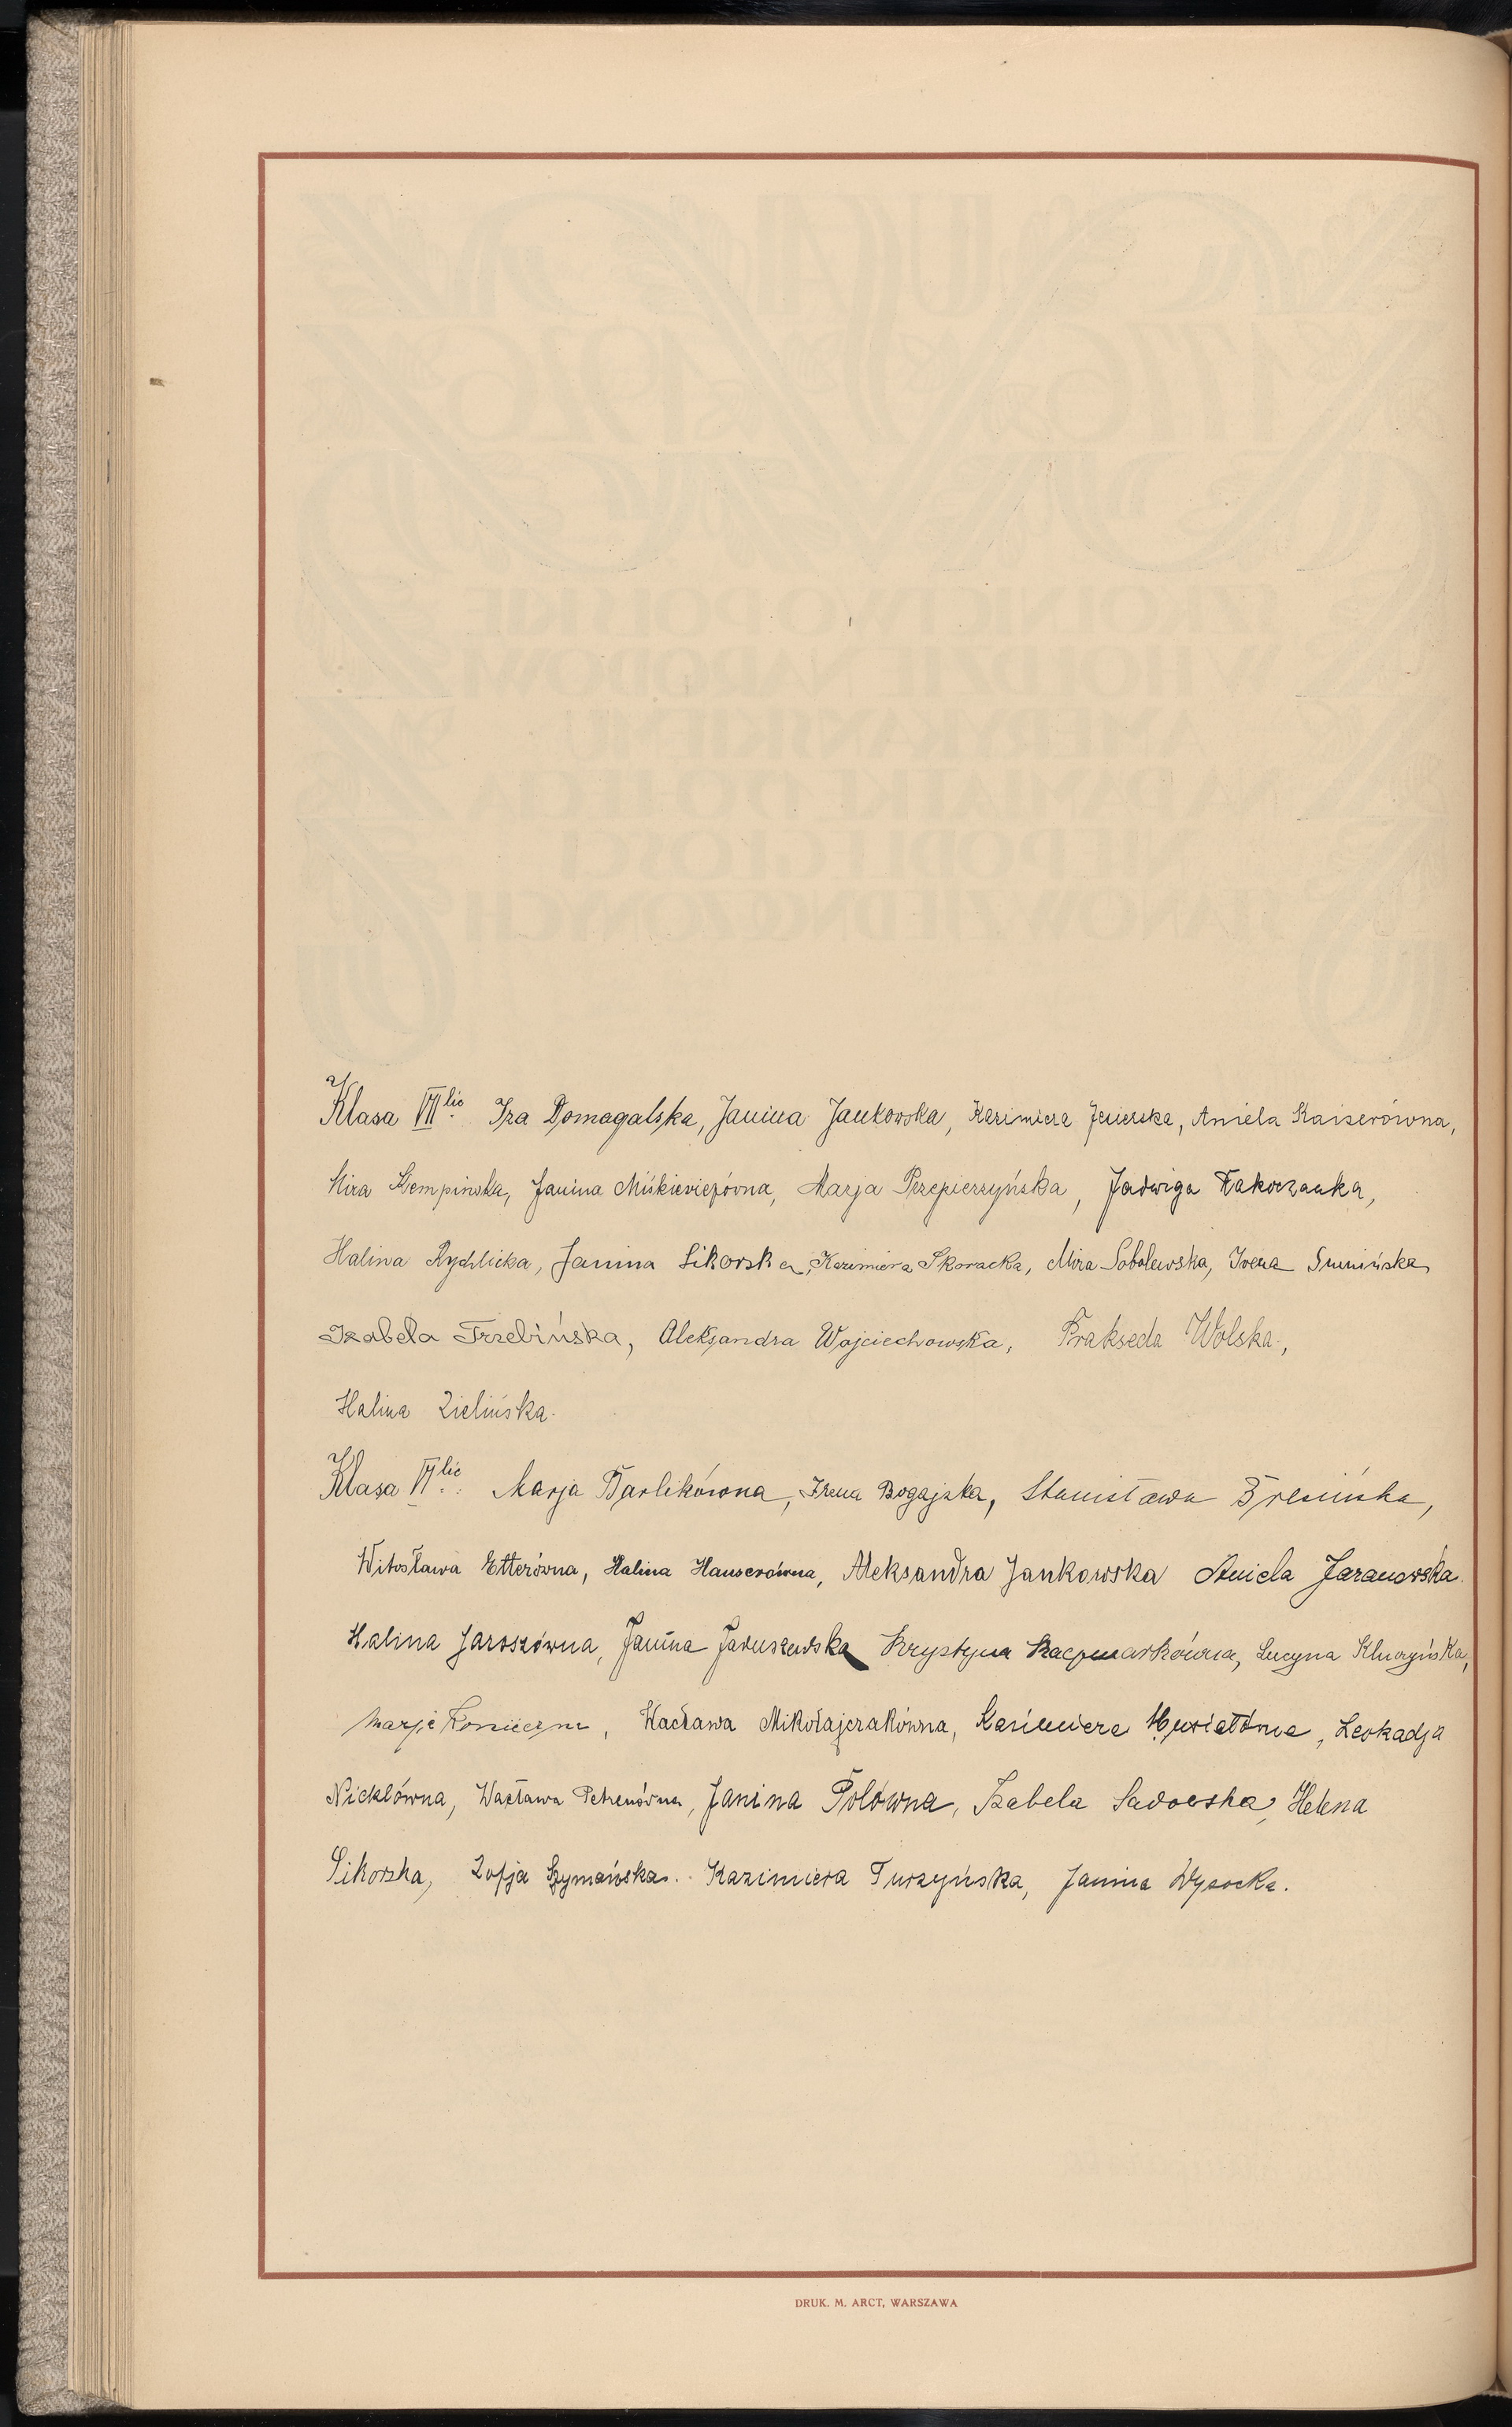 Klasa VII lic. Iza Domagalska, Janina Jankowska, Kazimiera Jezierska, Aniela Kaiserówna,
Mira Kempińska, Janina Miśkiewiczówna, Marja Przepierzyńska, Jadwiga
Halina Rychlicka, Janina Sikorska, Kazimiera Skoracka, Mira Sobolewska, Irena
Izabela Trzebińska, Aleksandra Wojciechowska, Prakseda Wolska,
Halina Zielińska.
Klasa VI lic. Marja Barlikówna, Irena Bogajska, Stanisława Bresińska,
Witosława Etterówna, Halina Hauserówna, Aleksandra Jankowska Aniela Jaranowska.
Halina Jaroszówna, Janina Jaruszewska Krystyna Kaczmarkówna, Lucyna Kluczyńska,
Marja Konieczna, Wacława Mikołajczakówna, Kazimiera Leokadja
Nicklówna, Wacława Petrenówna, Janina Polówna, Izabela Sadowska, Helena
Sikorska, Zofja Szymańska. Kazimiera Turzyńska, Janina Wysocka.
DRUK. M. ARCT, WARSZAWA